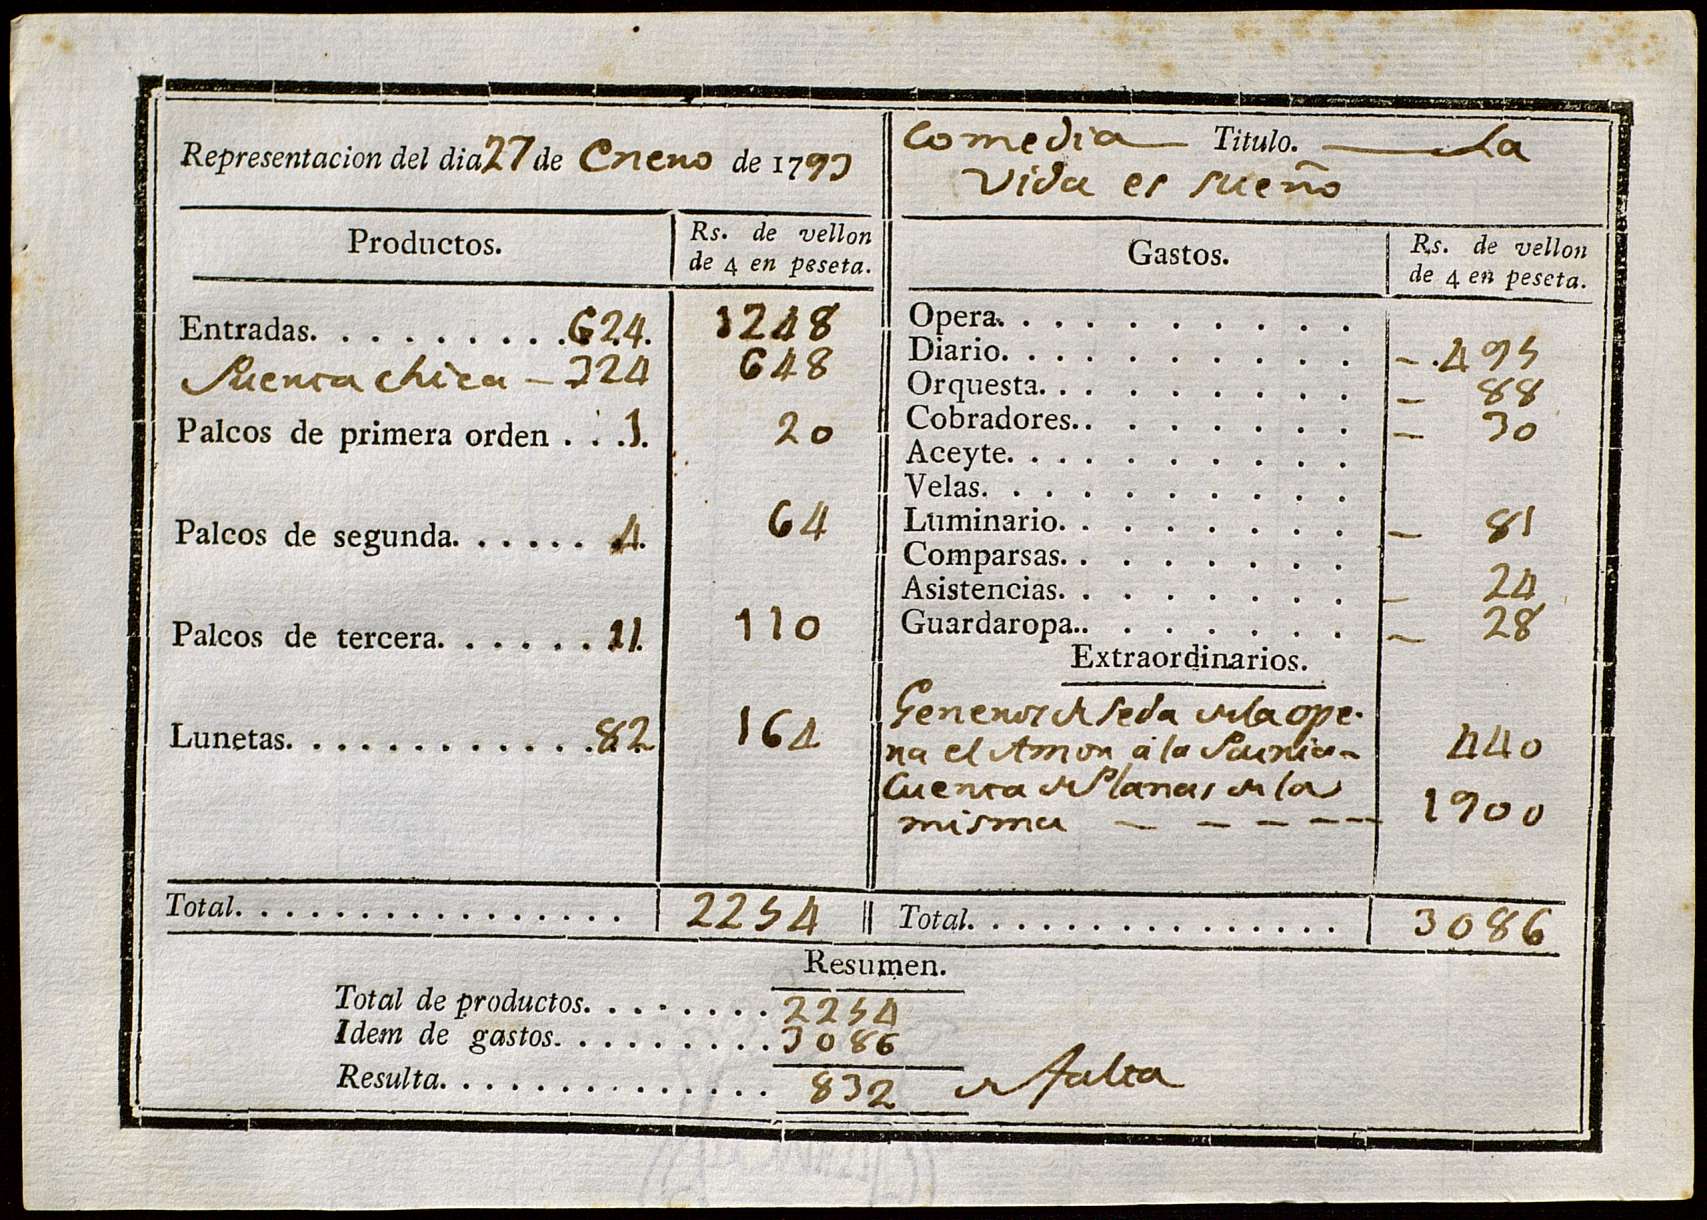 Representacion del dia 27 de Enero de 1793
Comedia Titulo. La
Vida es sueño
Productos.
Rs. de vellon
de 4 en peseta.
Entradas. . . . . . . . . . 624. 1248
Puerta chica — 324 648
Palcos de primera orden . . . 1. 20
Palcos de segunda. . . . . . 4. 64
Palcos de tercera. . . . . . 11. 110
Lunetas. . . . . . . . . . . . . 82 164
Total. . . . . . . . . . . . . . . . 2254
Gastos.
Rs. de vellon
de 4 en peseta.
Opera. . . . . . . . . . .
Diario. . . . . . . . . . . — 495
Orquesta. . . . . . . . . — 88
Cobradores. . . . . . . . — 30
Aceyte. . . . . . . . . . .
Velas. . . . . . . . . . .
Luminario. . . . . . . . — 81
Comparsas. . . . . . . .
Asistencias. . . . . . . . — 24
Guardaropa. . . . . . . . — 28
Extraordinarios.
Generos de seda de la ope-
ra el Amor a la 440
Cuenta de de la
misma — — — — — 1900
Total. . . . . . . . . . . . . . . . 3086
Resumen.
Total de productos. . . . . . . . 2254
Idem de gastos. . . . . . . . . . 3086
Resulta. . . . . . . . . . . . . . 832 de falta